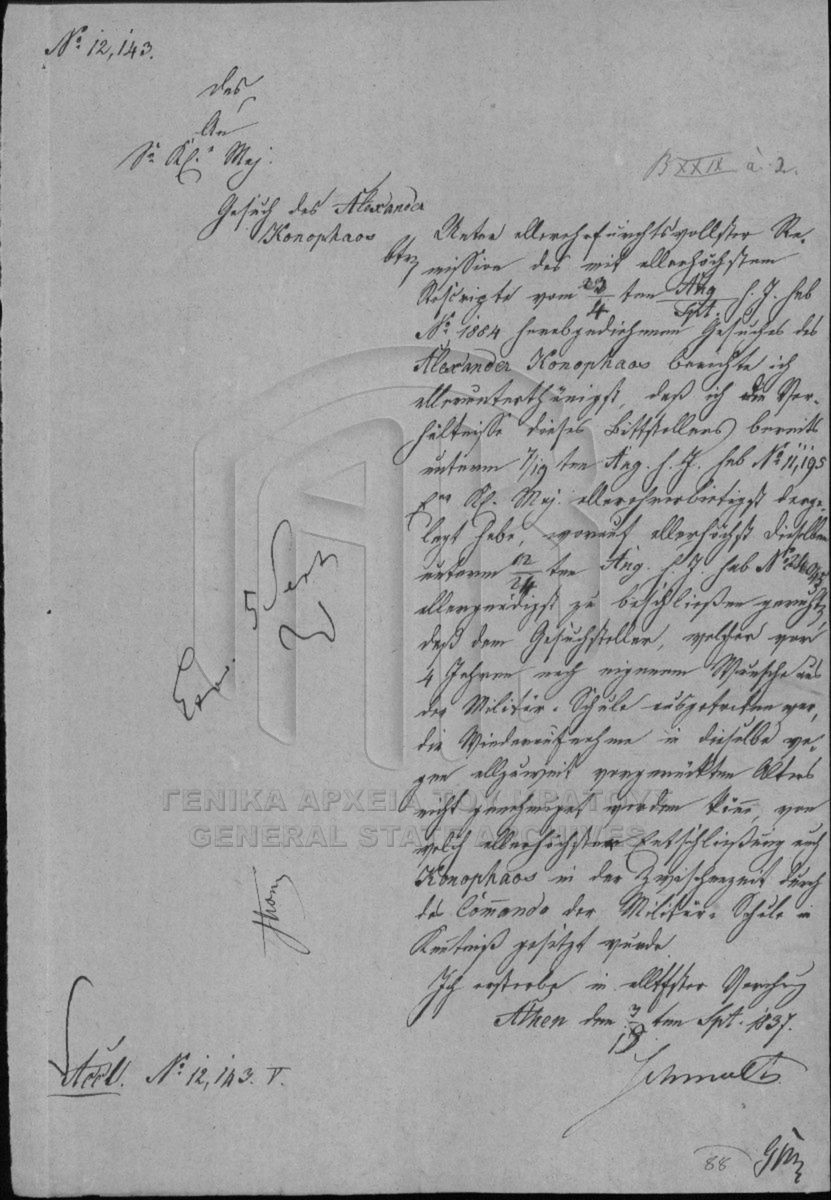 No 12,143.
An
Se. Kgl. Maj.
Gesuch des Alexander
Konophaos
btr.
B XXIX à 2.
Unter allerehrfurchtsvollster Re-
mission des mit allerhöchstem
Rescripte vom 23/4 ten Aug/Spt. h. J. sub
No 1884 herabgediehenen Gesuches des
Alexander Konophaos berichte ich
allerunterthänigst, daß ich die Ver-
hältnisse dieses Bittstellers bereits
unterm 7/19 ten Aug. h. J. sub No 11,195
Kgl. Maj. allerehrerbietigst darge-
legt habe, worauf allerhöchst Dieselben
unterm 12/24 ten Aug. h. J. sub No
allergnädigst zu beschließen geruht,
daß dem Gesuchsteller, welcher vor
4 Jahren nach eigenem Wunsche aus
der Militär-Schule ausgetreten war,
die Wiederaufnahme in dieselbe we-
gen allzuweit vorgerückten Alters
nicht genehmiget werden könne, von
welch allerhöchster Entschließung auch
Konophaos in der Zwischenzeit durch
das Commando der Militär-Schule in
Kentniß gesetzt wurde
Ich ersterbe in
Athen den ten Spt. 1837.
Schmaltz
Exp. 5 Sept
No 12,143. V.
88
ΓΕΝΙΚΑ ΑΡΧΕΙΑ ΤΟΥ ΚΡΑΤΟΥΣ
GENERAL STATE ARCHIVES